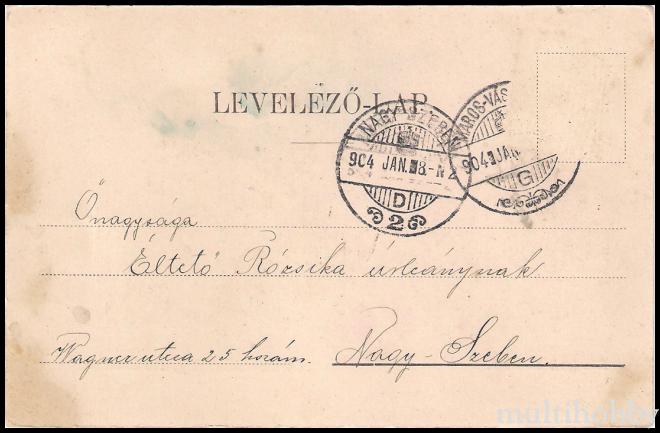 LEVELEZŐ-LAP
NAGY-SZEBEN
904 JAN. 8.-N2
D
2
VÁROS-VÁS
904 JAN
G
Őnagysága
Éltető Rózsika úrleánynak
Wagner utca 25 hszám. Nagy-Szeben.
multihobby